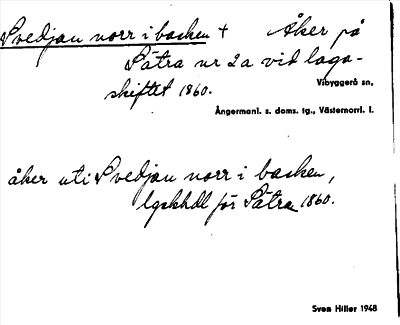 Svedjan norr i backen + Åker på
Sätra nr 2a vid laga-
skiftet 1860.
Vibyggerå sn,
Ångermanl. s. doms. tg., Västernorrl. l.
åker uti Svedjan norr i backen,
lgskhdl för Sätra 1860.
Sven Hiller 1948